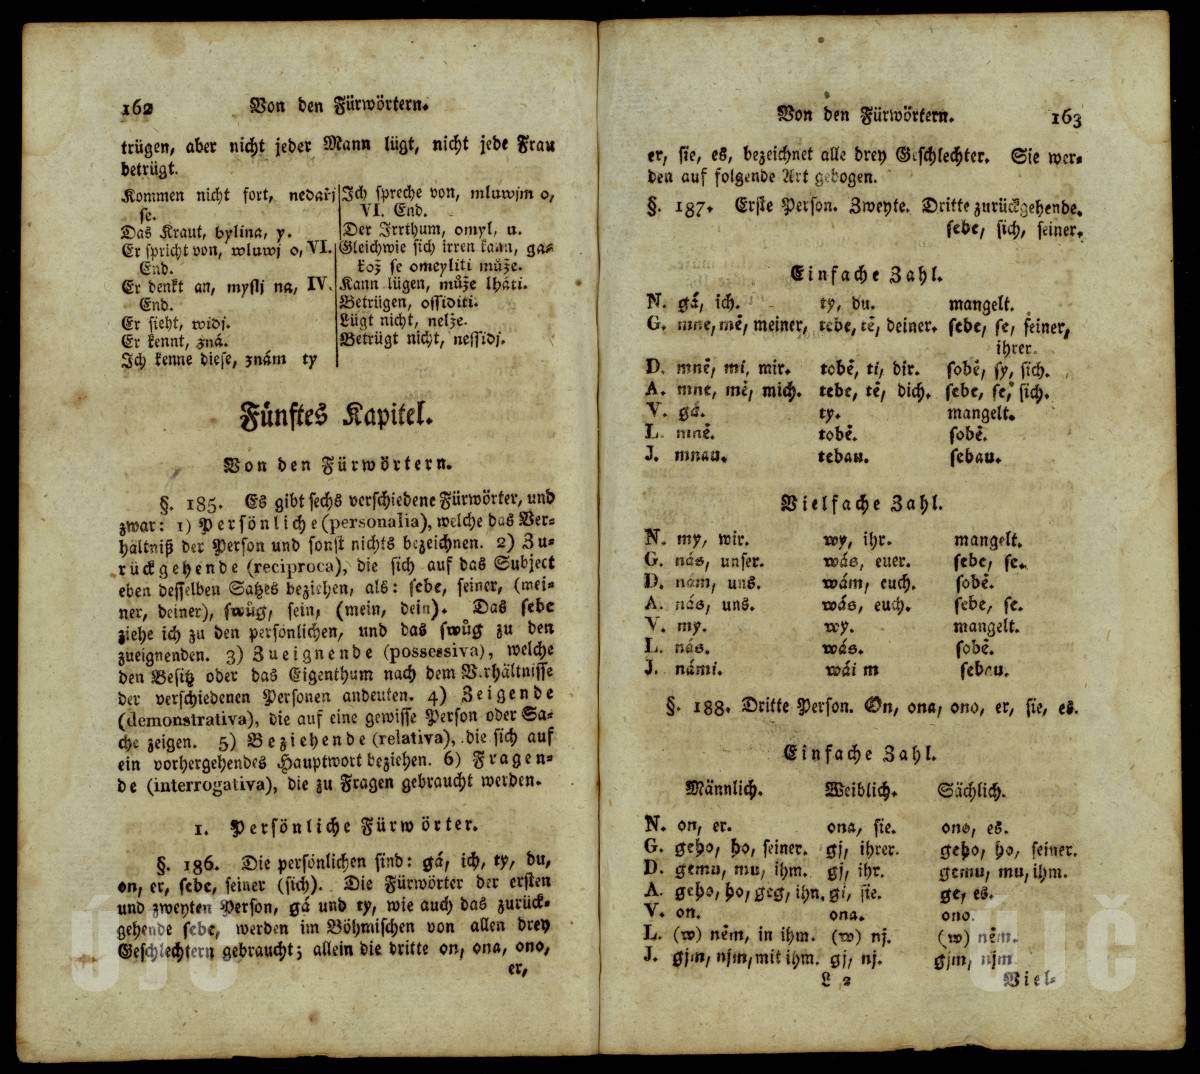 162 Von den Fürwörtern.
trügen, aber nicht jeder Mann lügt, nicht jede Frau
betrügt.
Kommen nicht fort, nedařj
se.
Das Kraut, bylina, y.
Er spricht von, wluwj o, VI.
End.
Er denkt an, myslj na, IV.
End.
Er sieht, widj.
Er kennt, zná.
Ich kenne diese, znám ty
Ich spreche von, mluwjm o,
VI. End.
Der Irrthum, omyl, u.
Gleichwie sich irren kann, ga-
kož se omeyliti může.
Kann lügen, může lháti.
Betrügen, ossiditi.
Lügt nicht, nelže.
Betrügt nicht, nessidj.
Fünftes Kapitel.
Von den Fürwörtern.
§. 185. Es gibt sechs verschiedene Fürwörter, und
zwar: 1) Persönliche (personalia), welche das Ver-
hältniß der Person und sonst nichts bezeichnen. 2) Zu-
rückgehende (reciproca), die sich auf das Subject
eben desselben Satzes beziehen, als: sebe, seiner, (mei-
ner, deiner), swůg, sein, (mein, dein). Das sebe
ziehe ich zu den persönlichen, und das swůg zu den
zueignenden. 3) Zueignende (possessiva), welche
den Besitz oder das Eigenthum nach dem Verhältnisse
der verschiedenen Personen andeuten. 4) Zeigende
(demonstrativa), die auf eine gewisse Person oder Sa-
che zeigen. 5) Beziehende (relativa), die sich auf
ein vorhergehendes Hauptwort beziehen. 6) Fragen-
de (interrogativa), die zu Fragen gebraucht werden.
1. Persönliche Fürwörter.
§. 186. Die persönlichen sind: gá, ich, ty, du,
on, er, sebe, seiner (sich). Die Fürwörter der ersten
und zweyten Person, gá und ty, wie auch das zurück-
gehende sebe, werden im Böhmischen von allen drey
Geschlechtern gebraucht; allein die dritte on, ona, ono,
er,
Von den Fürwörtern. 163
er, sie, es, bezeichnet alle drey Geschlechter. Sie wer-
den auf folgende Art gebogen.
§. 187. Erste Person. Zweyte. Dritte zurückgehende.
sebe, sich, seiner.
Einfache Zahl.
N. gá, ich. ty, du. mangelt.
G. mne, mě, meiner, tebe, tě, deiner. sebe, se, seiner,
ihrer.
D. mně, mi, mir. tobě, ti, dir. sobě, sy, sich.
A. mne, mě, mich. tebe, tě, dich. sebe, se, sich.
V. gá. ty. mangelt.
L. mně. tobě. sobě.
J. mnau. tebau. sebau.
Vielfache Zahl.
N. my, wir. wy, ihr. mangelt.
G. nás, unser. wás, euer. sebe, se.
D. nám, uns. wám, euch. sobě.
A. nás, uns. wás, euch. sebe, se.
V. my. wy. mangelt.
L. nás. wás. sobě.
J. námi. wái m sebau.
§. 188. Dritte Person. On, ona, ono, er, sie, es.
Einfache Zahl.
Männlich. Weiblich. Sächlich.
N. on, er. ona, sie. ono, es.
G. geho, ho, seiner. gj, ihrer. geho, ho, seiner.
D. gemu, mu, ihm. gj, ihr. gemu, mu, ihm.
A. geho, ho, geg, ihn. gi, sie. ge, es.
V. on. ona. ono.
L. (w) něm, in ihm. (w) nj. (w) něm.
J. gjm, njm, mit ihm. gj, nj. gjm, njm
L 2 Viel-
ÚJČ ÚJČ